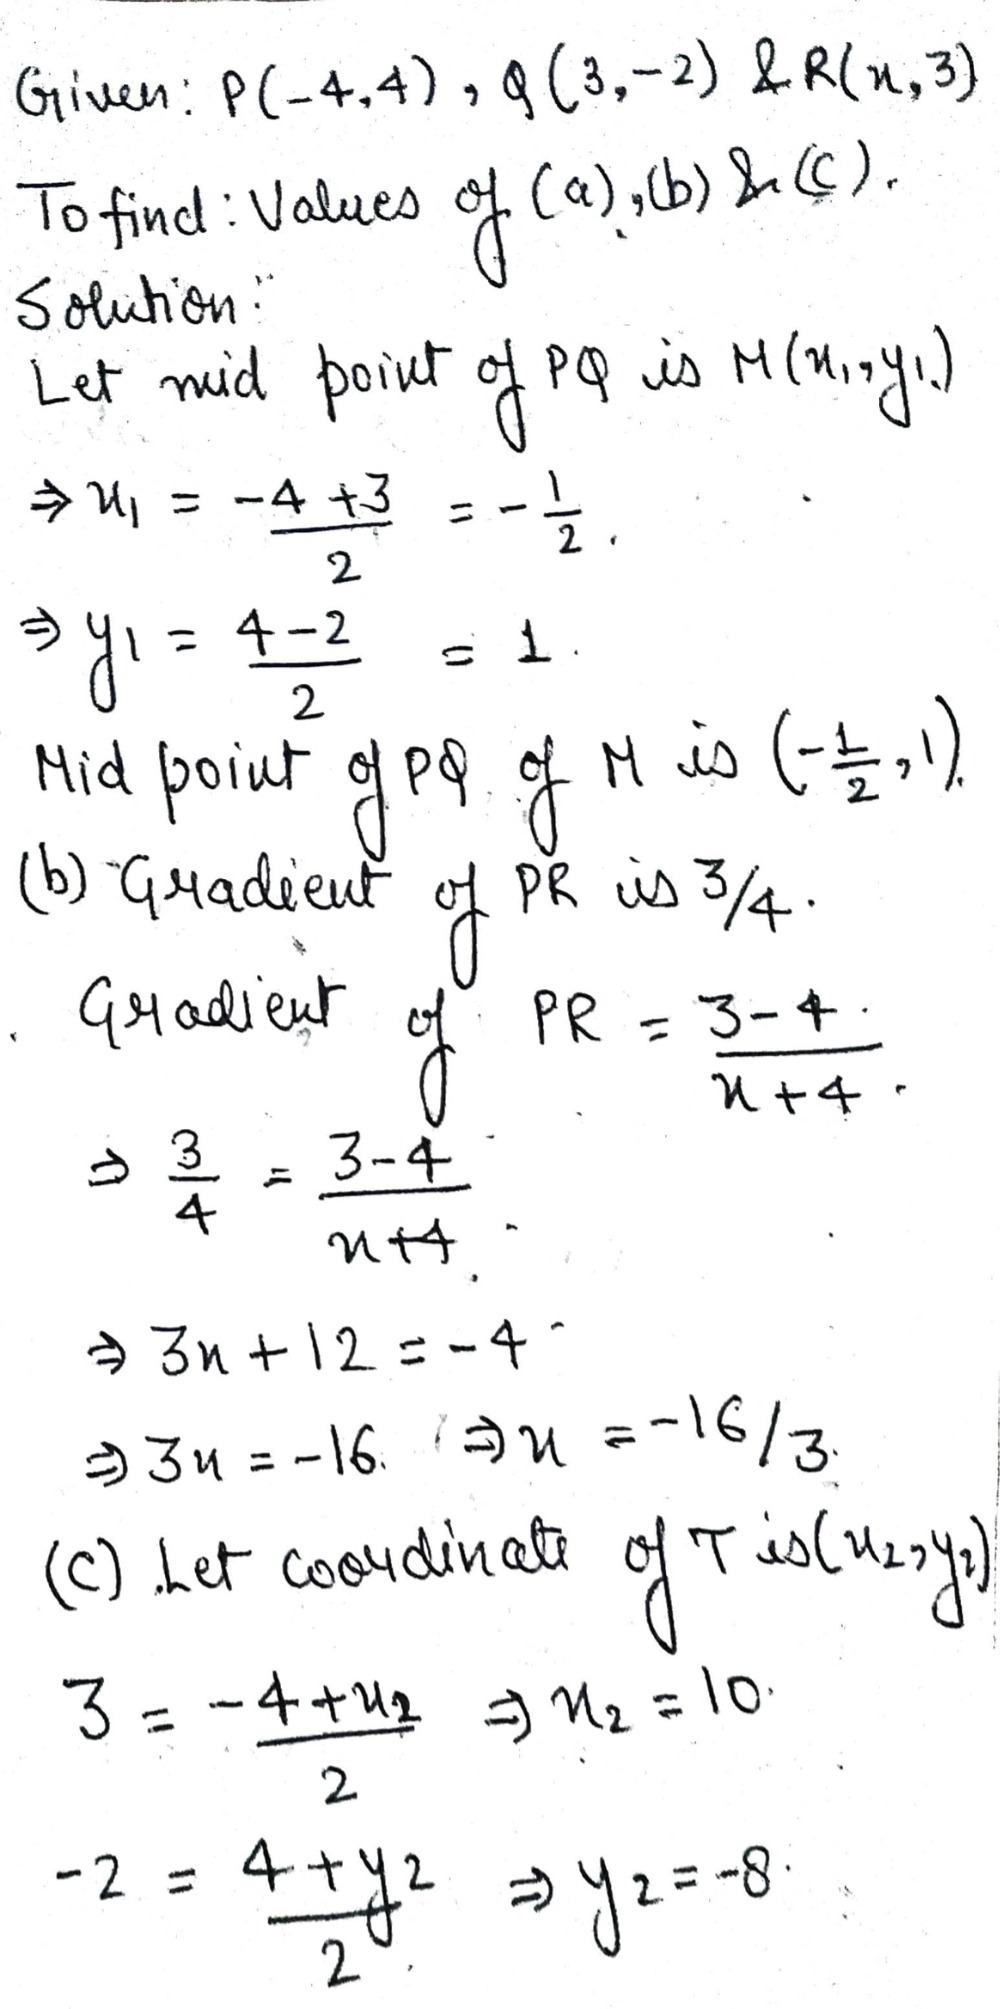 Given: P(-4,4), Q(3,-2) & R(x,3)
To find: Values of (a),(b) & (c).
Solution:
Let mid point of PQ is M(x₁,y₁)
⇒ x₁ = (-4+3)/2 = -1/2.
⇒ y₁ = (4-2)/2 = 1.
Mid point of PQ of M is (-1/2, 1).
(b) Gradient of PR is 3/4.
Gradient of PR = (3-4)/(x+4).
⇒ 3/4 = (3-4)/(x+4).
⇒ 3x+12 = -4
⇒ 3x = -16. ⇒ x = -16/3.
(C) Let coordinate of T is (x₂,y₂)
3 = (-4+x₂)/2 ⇒ x₂ = 10.
-2 = (4+y₂)/2 ⇒ y₂ = -8.